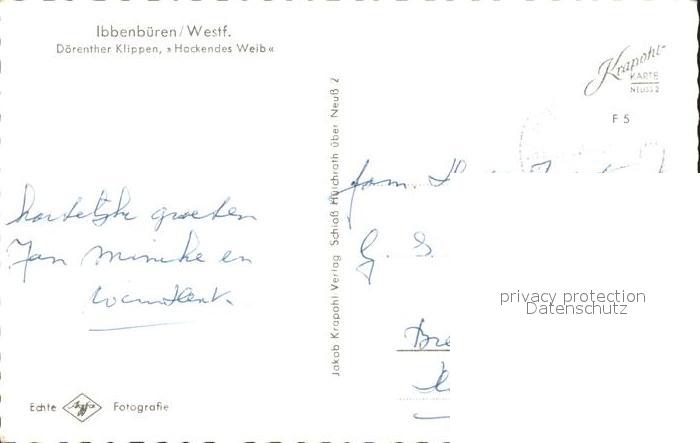 Ibbenbüren/Westf.
Dörenther Klippen, »Hockendes Weib«
Krapohl-
KARTE
NEUSS 2
F 5
Jakob Krapohl Verlag Schloß Hülchrath über Neuß 2
hartelijke groeten
Jan Mineke en
fam.
G. S.
Bre
privacy protection
Datenschutz
Echte Agfa Fotografie